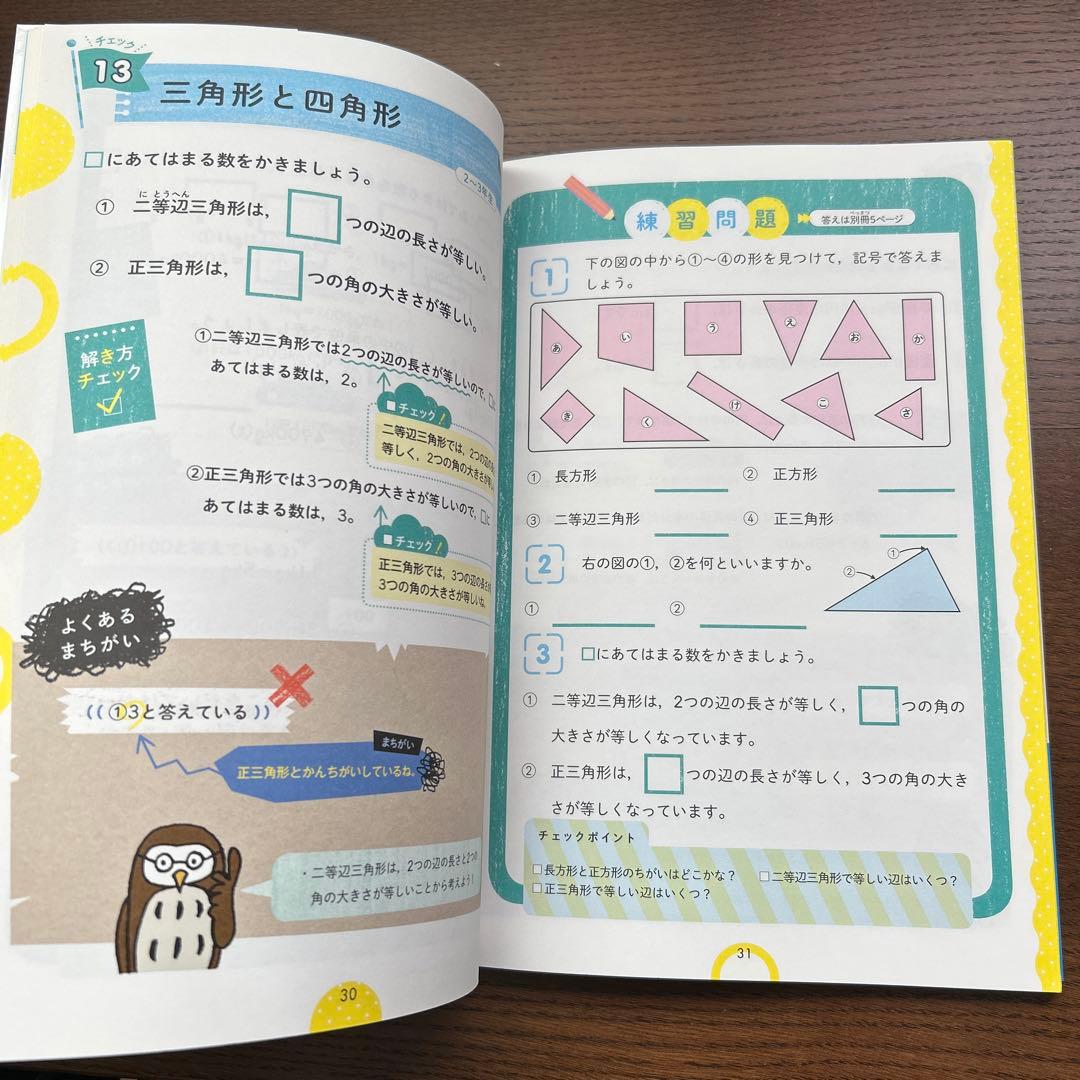 チェック
13
三角形と四角形
2〜3年生
□にあてはまる数をかきましょう。
① 二等辺三角形は，□つの辺の長さが等しい。
にとうへん
② 正三角形は，□つの角の大きさが等しい。
解き方
チェック
①二等辺三角形では2つの辺の長さが等しいので，□に
あてはまる数は，2。
■チェック！
二等辺三角形では，2つの辺の
等しく，2つの角の大きさが等し
②正三角形では3つの角の大きさが等しいので，□に
あてはまる数は，3。
■チェック！
正三角形では，3つの辺の長さ
3つの角の大きさが等しいね。
よくある
まちがい
((①3と答えている))
まちがい
正三角形とかんちがいしているね。
・二等辺三角形は，2つの辺の長さと2つの
角の大きさが等しいことから考えよう！
30
練習問題
答えは別冊5ページ
べっさつ
1
下の図の中から①〜④の形を見つけて，記号で答えま
しょう。
あ い う え お か
き く け こ さ
① 長方形 ② 正方形
③ 二等辺三角形 ④ 正三角形
2
右の図の①，②を何といいますか。
①
②
① ②
3
□にあてはまる数をかきましょう。
① 二等辺三角形は，2つの辺の長さが等しく，□つの角の
大きさが等しくなっています。
② 正三角形は，□つの辺の長さが等しく，3つの角の大き
さが等しくなっています。
チェックポイント
□長方形と正方形のちがいはどこかな？ □二等辺三角形で等しい辺はいくつ？
□正三角形で等しい辺はいくつ？
31